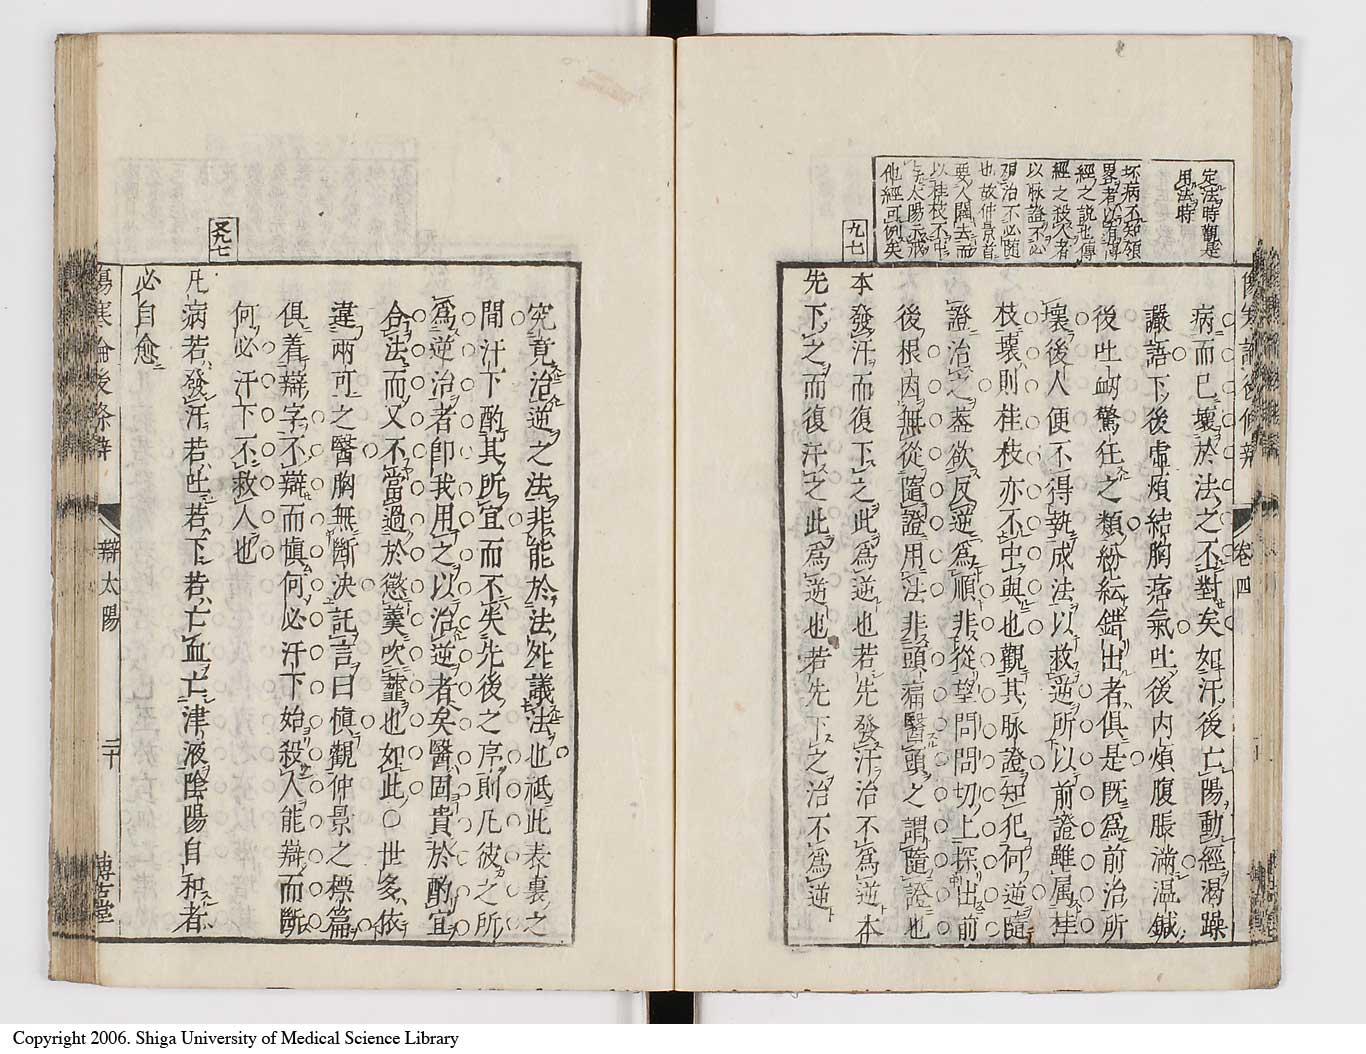 定法時觀是
用法時
坏病不知須
經之說也傳
經之殺人者
以脉證不必
治不必隨
也故仲景首
要人闢去而
以桂枝不中
太陽示戒
他經可例矣
九七
傷寒論後條辨
卷四
病而已壞於法之不對矣如汗後亡陽動經渴躁
讝語下後虛煩結胸痞氣吐後内煩腹脹滿溫鍼
後吐衂驚狂之類紛紜錯出者俱是既爲前治所
壞後人便不得執成法以救逆所以前證雖属桂
枝壞則桂枝亦不中與也觀其脉證知犯何逆隨
證治之葢欲反逆爲順非從望問問切上探出前
後根因無從隨證用法非頭痛醫頭之謂隨證也
本發汗而復下之此爲逆也若先發汗治不爲逆本
先下之而復汗之此爲逆也若先下之治不爲逆
又九七
究竟治逆之法非能於法外議法也祗此表裏之
間汗下酌其所宜而不失先後之序則凡彼之所
爲逆治者卽我用之以治逆者矣醫固貴於酌宜
合法而又不當過於懲羹吹虀也如此○世多依
違兩可之醫胸無斷決託言曰愼觀仲景之標篇
俱着辯字不辯而愼何必汗下始殺人能辯而斷
何必汗下不救人也
凡病若發汗若吐若下若亡血亡津液陰陽自和者
必自愈
傷寒論後條辨
辯太陽
二十
博古堂
Copyright 2006. Shiga University of Medical Science Library